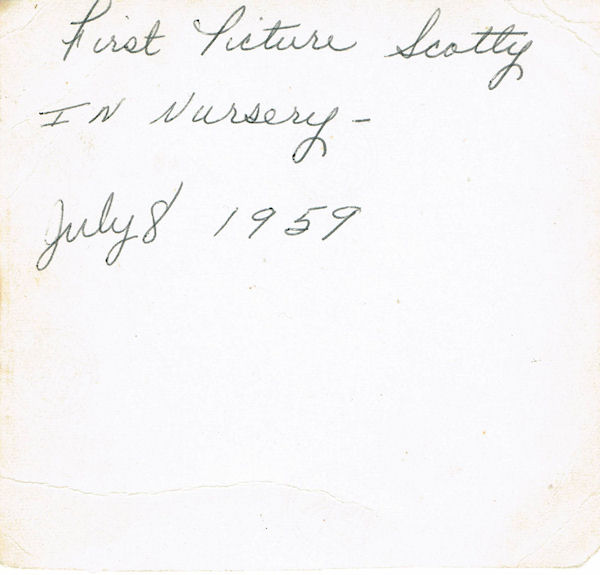 First Picture Scotty
IN Nursery -
July 8 1959